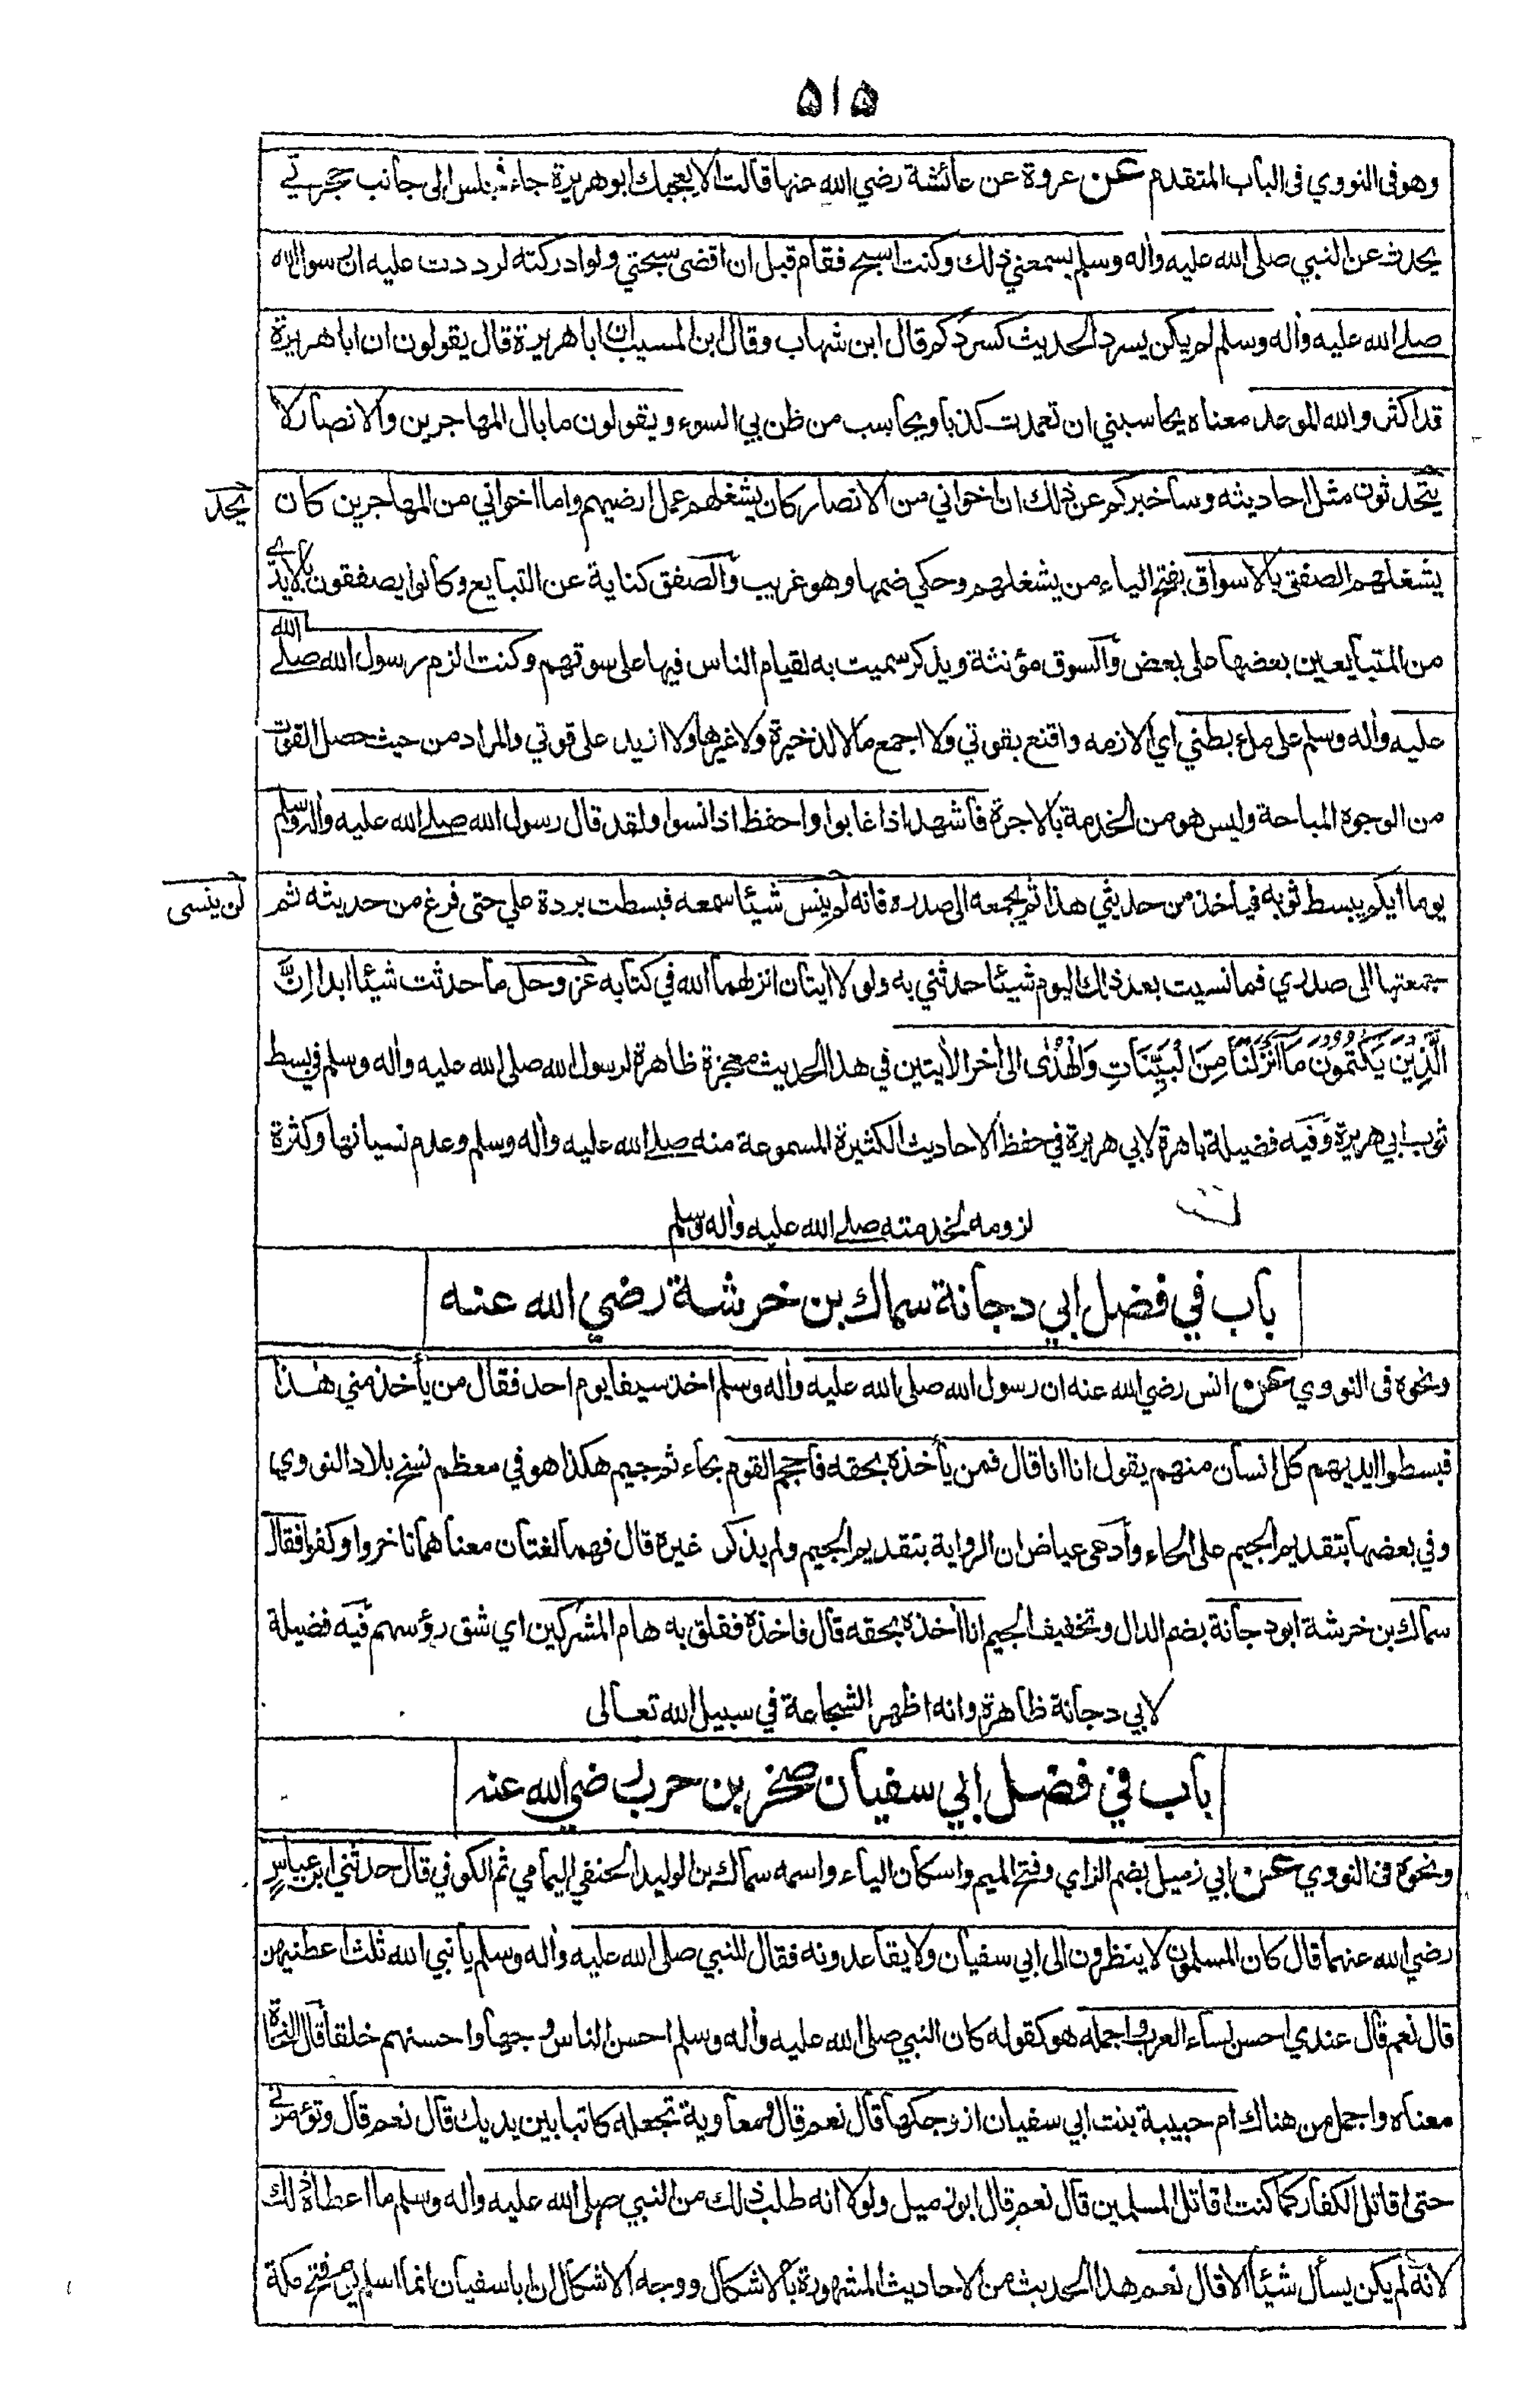 ٥١٥
وهو في النووي في الباب المتقدم عن عروة عن عائشة رضي الله عنها قالت الا يعجبك ابو هريرة جاء فجلس الى جانب حجرتي
يحدث عن النبي صلى الله عليه واٰله وسلم يسمعني ذلك وكنت اسبح فقام قبل ان اقضي سبحتي ولو ادركته لرددت عليه ان رسول الله
صلے الله عليه واٰله وسلم لم يكن يسرد الحديث كسردكم قال ابن شهاب وقال ابن المسيب ان ابا هريرة قال يقولون ان ابا هريرة
قد اكثر والله الموعد معناه يحاسبني ان تعمدت كذبا ويحاسب من ظن بي السوء ويقولون ما بال المهاجرين والانصار لا
يتحدثون مثل احاديثه وساخبركم عن ذلك ان اخواني من الانصار كان يشغلهم عمل ارضيهم واما اخواني من المهاجرين كان
يشغلهم الصفق بالاسواق بفتح الياء من يشغلهم وحكي ضمها وهو غريب والصفق كناية عن التبايع وكانوا يصفقون بالايدي
من المتبايعين بعضها على بعض والسوق مؤنثة ويذكر سميت به لقيام الناس فيها على سوقهم وكنت الزم رسول الله صلے الله
عليه واٰله وسلم على ملء بطني اي الازمه واقنع بقوتي ولا اجمع مالا لذخيرة ولا غيرها ولا ازيد على قوتي والمراد من حيث حصل القوت
من الوجوه المباحة وليس هو من الخدمة بالاجرة فاشهد اذا غابوا واحفظ اذا نسوا ولقد قال رسول الله صلے الله عليه واٰله وسلم
يوما ايكم يبسط ثوبه فياخذ من حديثي هذا ثم يجمعه الى صدره فانه لم ينس شيئا سمعه فبسطت بردة علي حتى فرغ من حديثه ثم
لن ينسى
جمعتها الى صدري فما نسيت بعد ذلك اليوم شيئا حدثني به ولولا ايتان انزلهما الله في كتابه عز وجل ما حدثت شيئا ابدا اِنَّ
الَّذِيْنَ يَكْتُمُوْنَ مَا اَنْزَلْنَا مِنَ الْبَيِّنَاتِ وَالْهُدٰى الى اٰخر الاٰيتين في هذا الحديث معجزة ظاهرة لرسول الله صلى الله عليه واٰله وسلم في بسط
ثوب ابي هريرة وفيه فضيلة باهرة لابي هريرة في حفظ الاحاديث الكثيرة المسموعة منه صلے الله عليه واٰله وسلم وعدم نسيانها وكثرة
لزومه لخدمته صلے الله عليه واٰله وسلم
باب في فضل ابي دجانة سماك بن خرشة رضي الله عنه
ونحوه في النووي عن انس رضي الله عنه ان رسول الله صلى الله عليه واٰله وسلم اخذ سيفا يوم احد فقال من يأخذ مني هٰذا
فبسطوا ايديهم كل انسان منهم يقول انا انا قال فمن يأخذه بحقه فاحجم القوم بحاء ثم جيم هكذا هو في معظم نسخ بلاد النووي
وفي بعضها بتقديم الجيم على الحاء وادعى عياض ان الرواية بتقديم الجيم ولم يذكر غيره قال فهما لغتان معناهما تاخروا وكفوا فقال
سماك بن خرشة ابو دجانة بضم الدال وتخفيف الجيم انا اٰخذه بحقه قال فاخذه ففلق به هام المشركين اي شق رؤسهم فيه فضيلة
لابي دجانة ظاهرة وانه اظهر الشجاعة في سبيل الله تعالى
باب في فضل ابي سفيان صخر بن حرب رضي الله عنه
ونحوه في النووي عن ابي زميل بضم الزاي وفتح الميم واسكان الياء واسمه سماك بن الوليد الحنفي اليمامي ثم الكوفي قال حدثني ابن عباس
رضي الله عنهما قال كان المسلمون لا ينظرون الى ابي سفيان ولا يقاعدونه فقال للنبي صلى الله عليه واٰله وسلم يا نبي الله ثلث اعطنيهن
قال نعم قال عندي احسن نساء العرب واجمله هو كقوله كان النبي صلى الله عليه واٰله وسلم احسن الناس وجها واحسنهم خلقا قال النحاة
معناه واجمل من هناك ام حبيبة بنت ابي سفيان ازوجكها قال نعم قال ومعاوية تجعله كاتبا بين يديك قال نعم قال وتؤمرني
حتى اقاتل الكفار كما كنت اقاتل المسلمين قال نعم قال ابو زميل ولولا انه طلب ذلك من النبي صلى الله عليه واٰله وسلم ما اعطاه ذلك
لانه لم يكن يسأل شيئا الا قال نعم هذا الحديث من الاحاديث المشهورة بالاشكال ووجه الاشكال ان ابا سفيان انما اسلم يوم فتح مكة